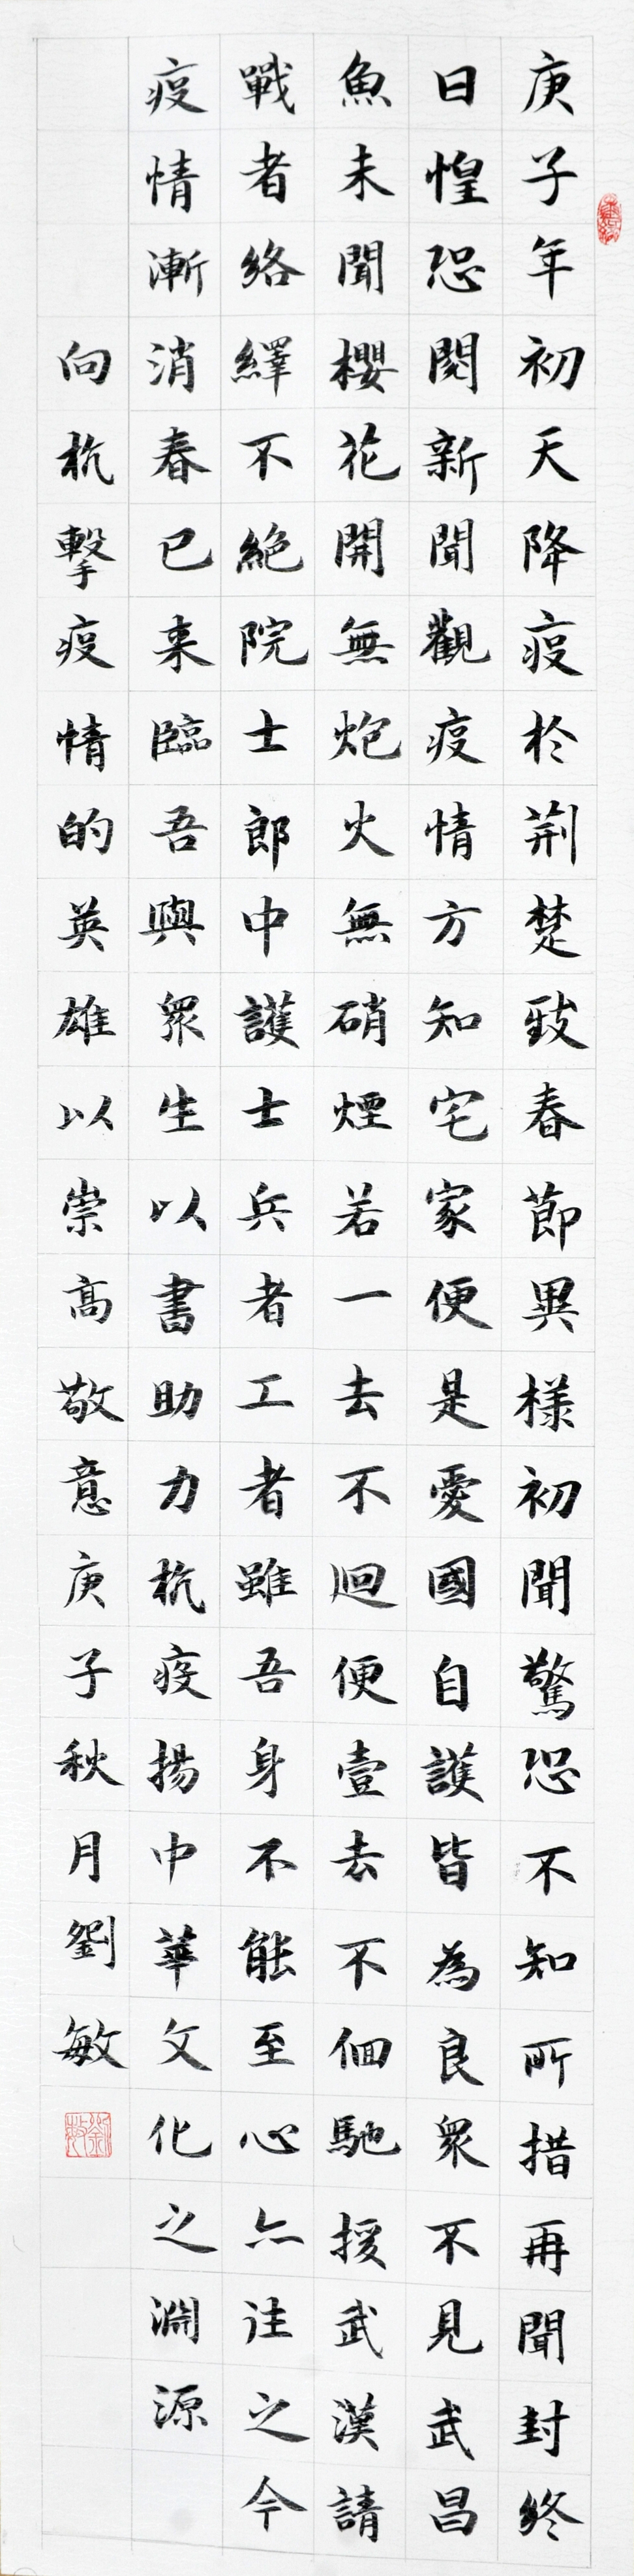 庚子年初天降疫於荊楚致春節異樣初聞驚恐不知所措再聞封終
日惶恐閱新聞觀疫情方知宅家便是愛國自護皆為良衆不見武昌
魚未聞櫻花開無炮火無硝煙若一去不迴便壹去不佪馳援武漢請
戰者絡繹不絕院士郎中護士兵者工者雖吾身不能至心亦往之今
疫情漸消春已来臨吾與衆生以書助力抗疫揚中華文化之淵源
向抗擊疫情的英雄以崇高敬意庚子秋月劉敏
劉敏